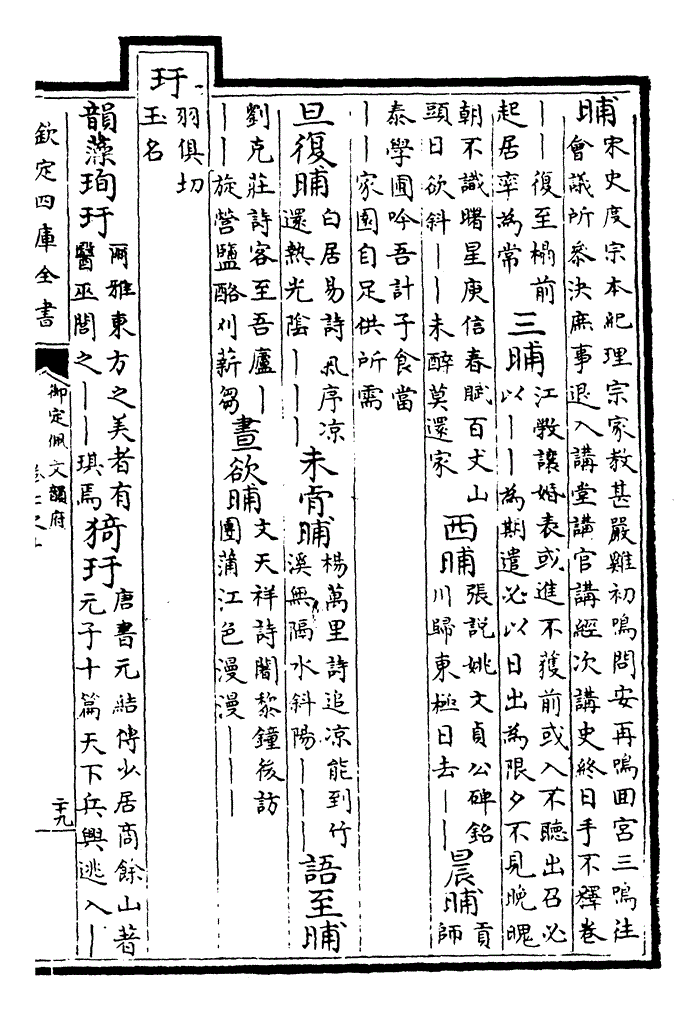 晡
宋史度宗本紀理宗家教甚嚴雞初鳴問安再鳴囘宮三鳴往
會議所參決庶事退入講堂講官講經次講史終日手不釋卷
——復至榻前
起居率為常
三晡
江斅讓婚表或進不獲前或入不聽出召必
以——為期遣必以日出為限夕不見晚魄
朝不識曙星庾信春賦百丈山
頭日欲斜——未醉莫還家
西晡
張說姚文貞公碑銘
川歸東極日去——
晨晡
貢
師
泰學圃吟吾計子食當
——家園自足供所需
旦復晡
白居易詩風序凉
還熱光陰———
未肎晡
楊萬里詩追凉能到竹
溪無隔水斜陽———
語至晡
劉克莊詩客至吾廬—
——旋營鹽酪刈薪芻
晝欲晡
文天祥詩闇黎鐘後訪
團蒲江色漫漫———
玗
羽俱切
玉名
韻藻珣玗
爾雅東方之美者有
醫巫閭之——琪焉
猗玗
唐書元結傳少居商餘山著
元子十篇天下兵興逃入—
欽定四庫全書
御定佩文韻府
二十九